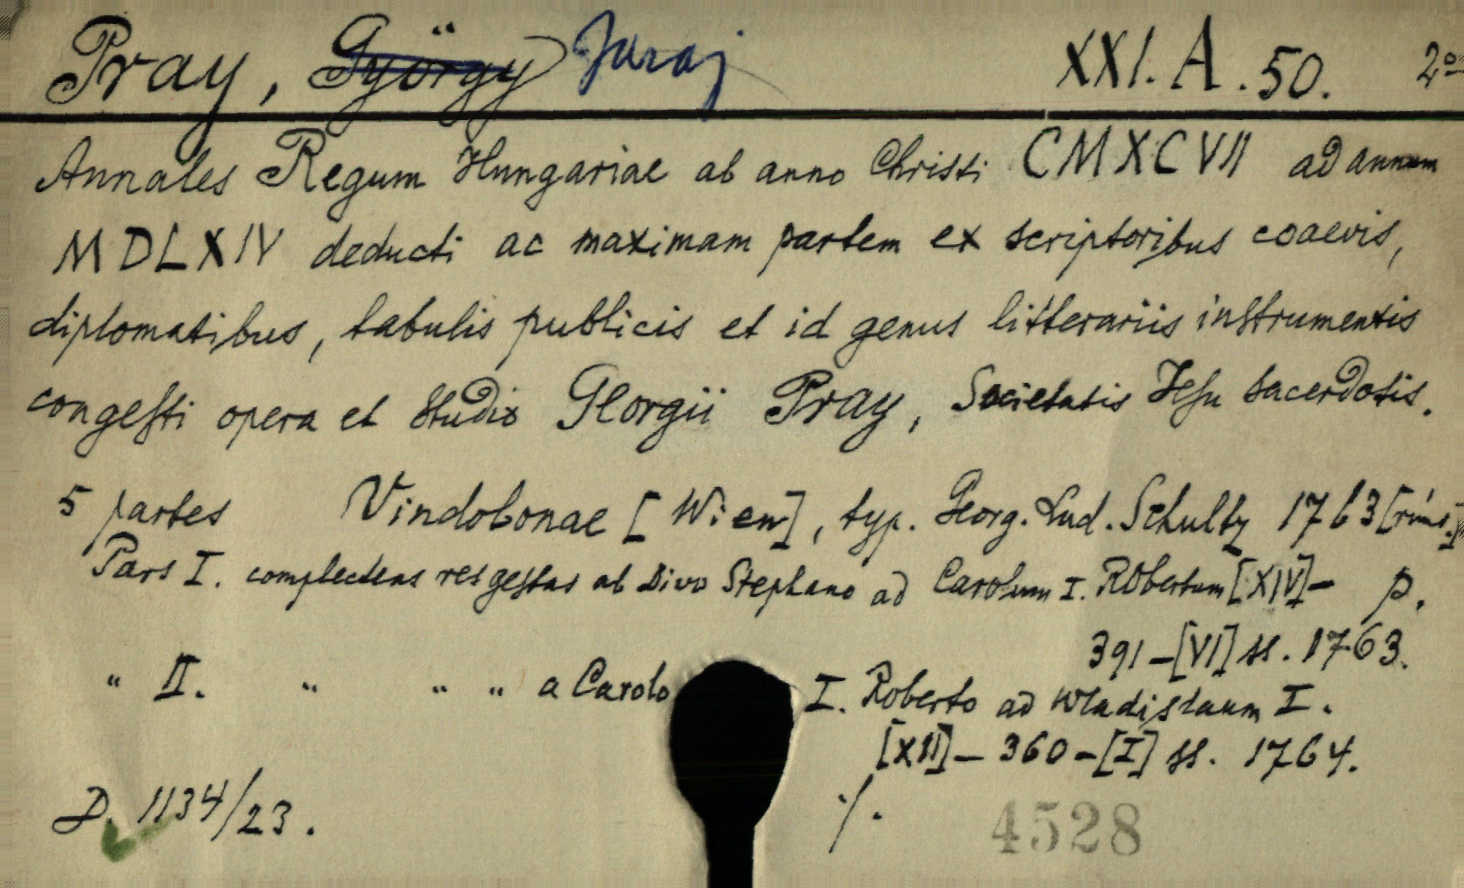 Pray, György Juraj XXI. A. 50. 2º
Annales Regum Hungariae ab anno Christi CMXCVII ad annum
MDLXIV deducti ac maximam partem ex scriptoribus coaevis,
diplomatibus, tabulis publicis et id genus litterariis instrumentis
congesti opera et studio Georgii Pray, Societatis Jesu sacerdotis.
5 partes Vindobonae [Wien], typ. Georg. Lud. Schultz 1763 [rims.]
Pars I. complectens res gestas ab Divo Stephano ad Carolum I. Robertum [XIV]- p.
391-[VI] ss. 1763.
" II. " " " a Carolo I. Roberto ad Wladislaum I.
[XII]- 360-[I] ss. 1764.
D. 1134/23. ./.
4528